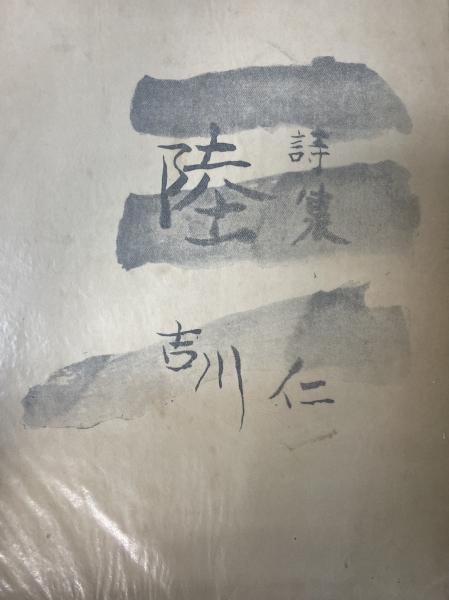 詩集
陸
吉川仁